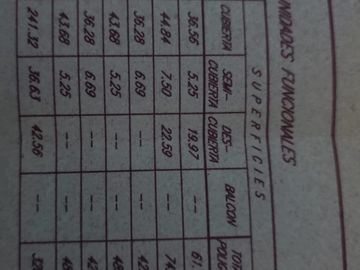 NIDADES FUNCIONALES
SUPERFICIES
CUBIERTA SEMI-CUBIERTA DES-CUBIERTA BALCON TOT POLIG
36.56 5.25 19.97 -- 61.
44.84 7.50 22.59 -- 74
36.28 6.69 -- -- 42
43.68 5.25 -- -- 48
36.28 6.69 -- -- 42
43.68 5.25 -- -- 48
241.32 36.63 42.56 -- 320